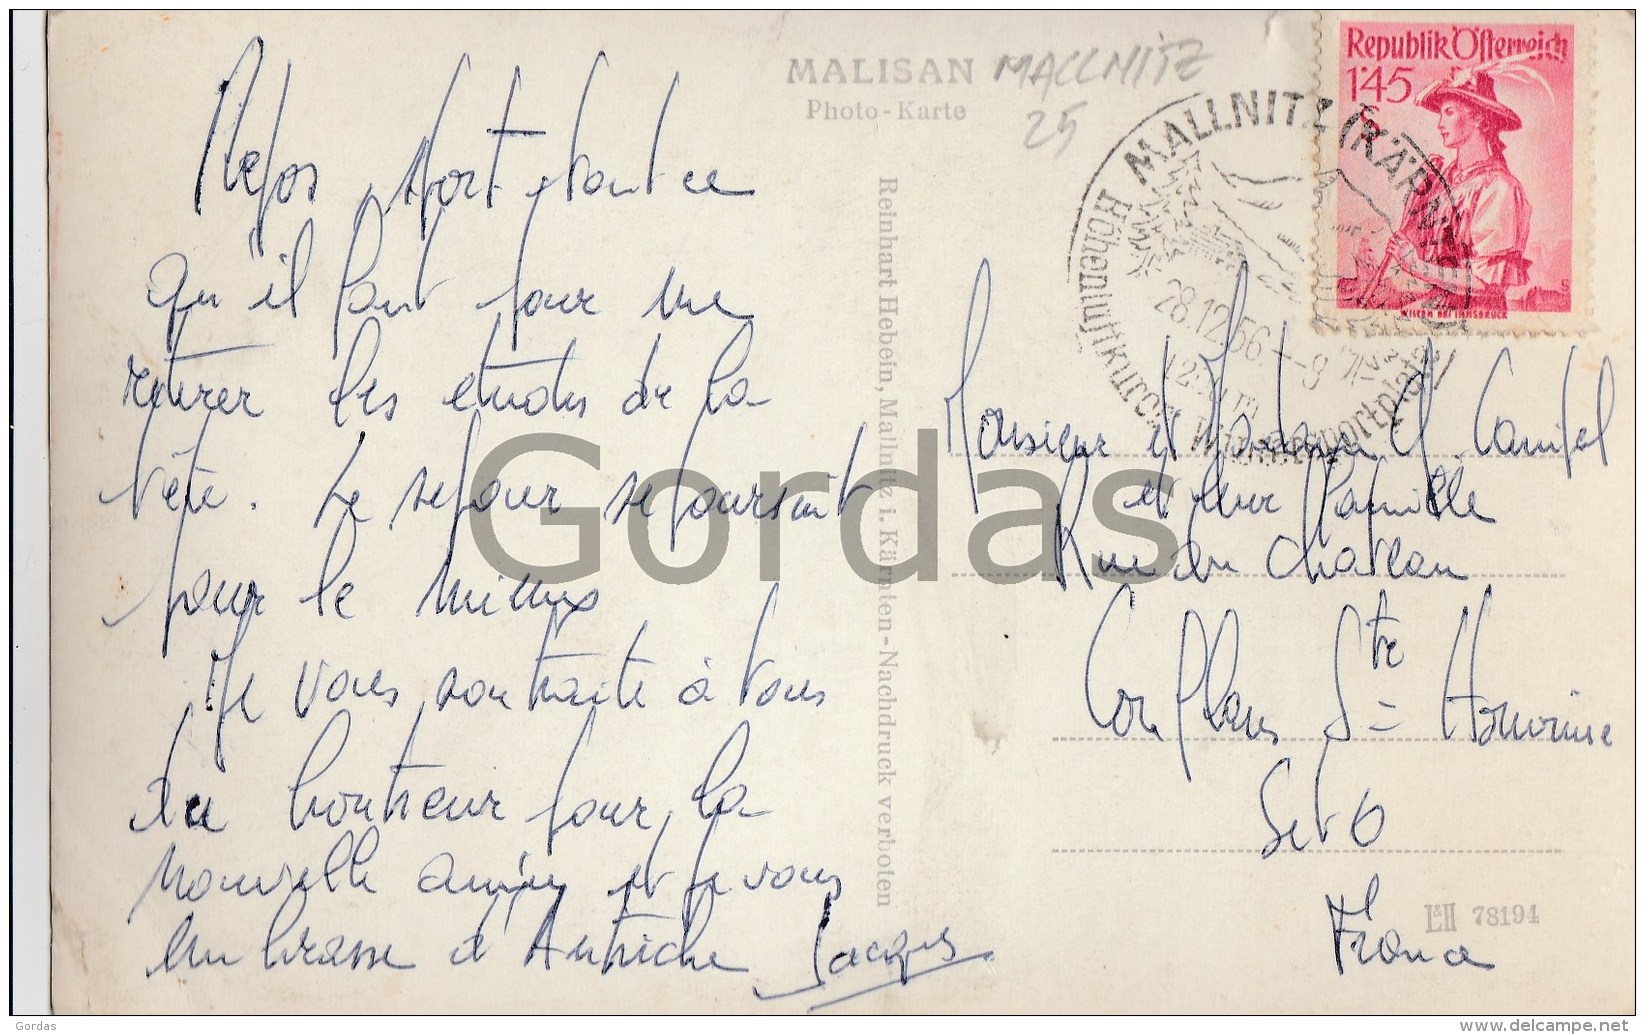 Repos, sport, tout ce
qu'il faut pour me
retirer les etudes de la
tête. Le sejour se poursuit
pour le mieux
Je vous souhaite à tous
du bonheur pour la
nouvelle année et je vous
embrasse d'Autriche Jacques
MALISAN
Photo-Karte
MALLNITZ
25
Reinhart Hebein, Mallnitz i. Kärnten-Nachdruck verboten
MALLNITZ (KÄRNTEN)
Höhenluftkurort
28.12.56.-9
Wintersportplatz
Republik Österreich
1·45
Monsieur et Madame
et leur famille
Rue du Chateau
Conflans Ste Honorine
Set O
France
L&H 78194
Gordas
Gordas
delcampe.net